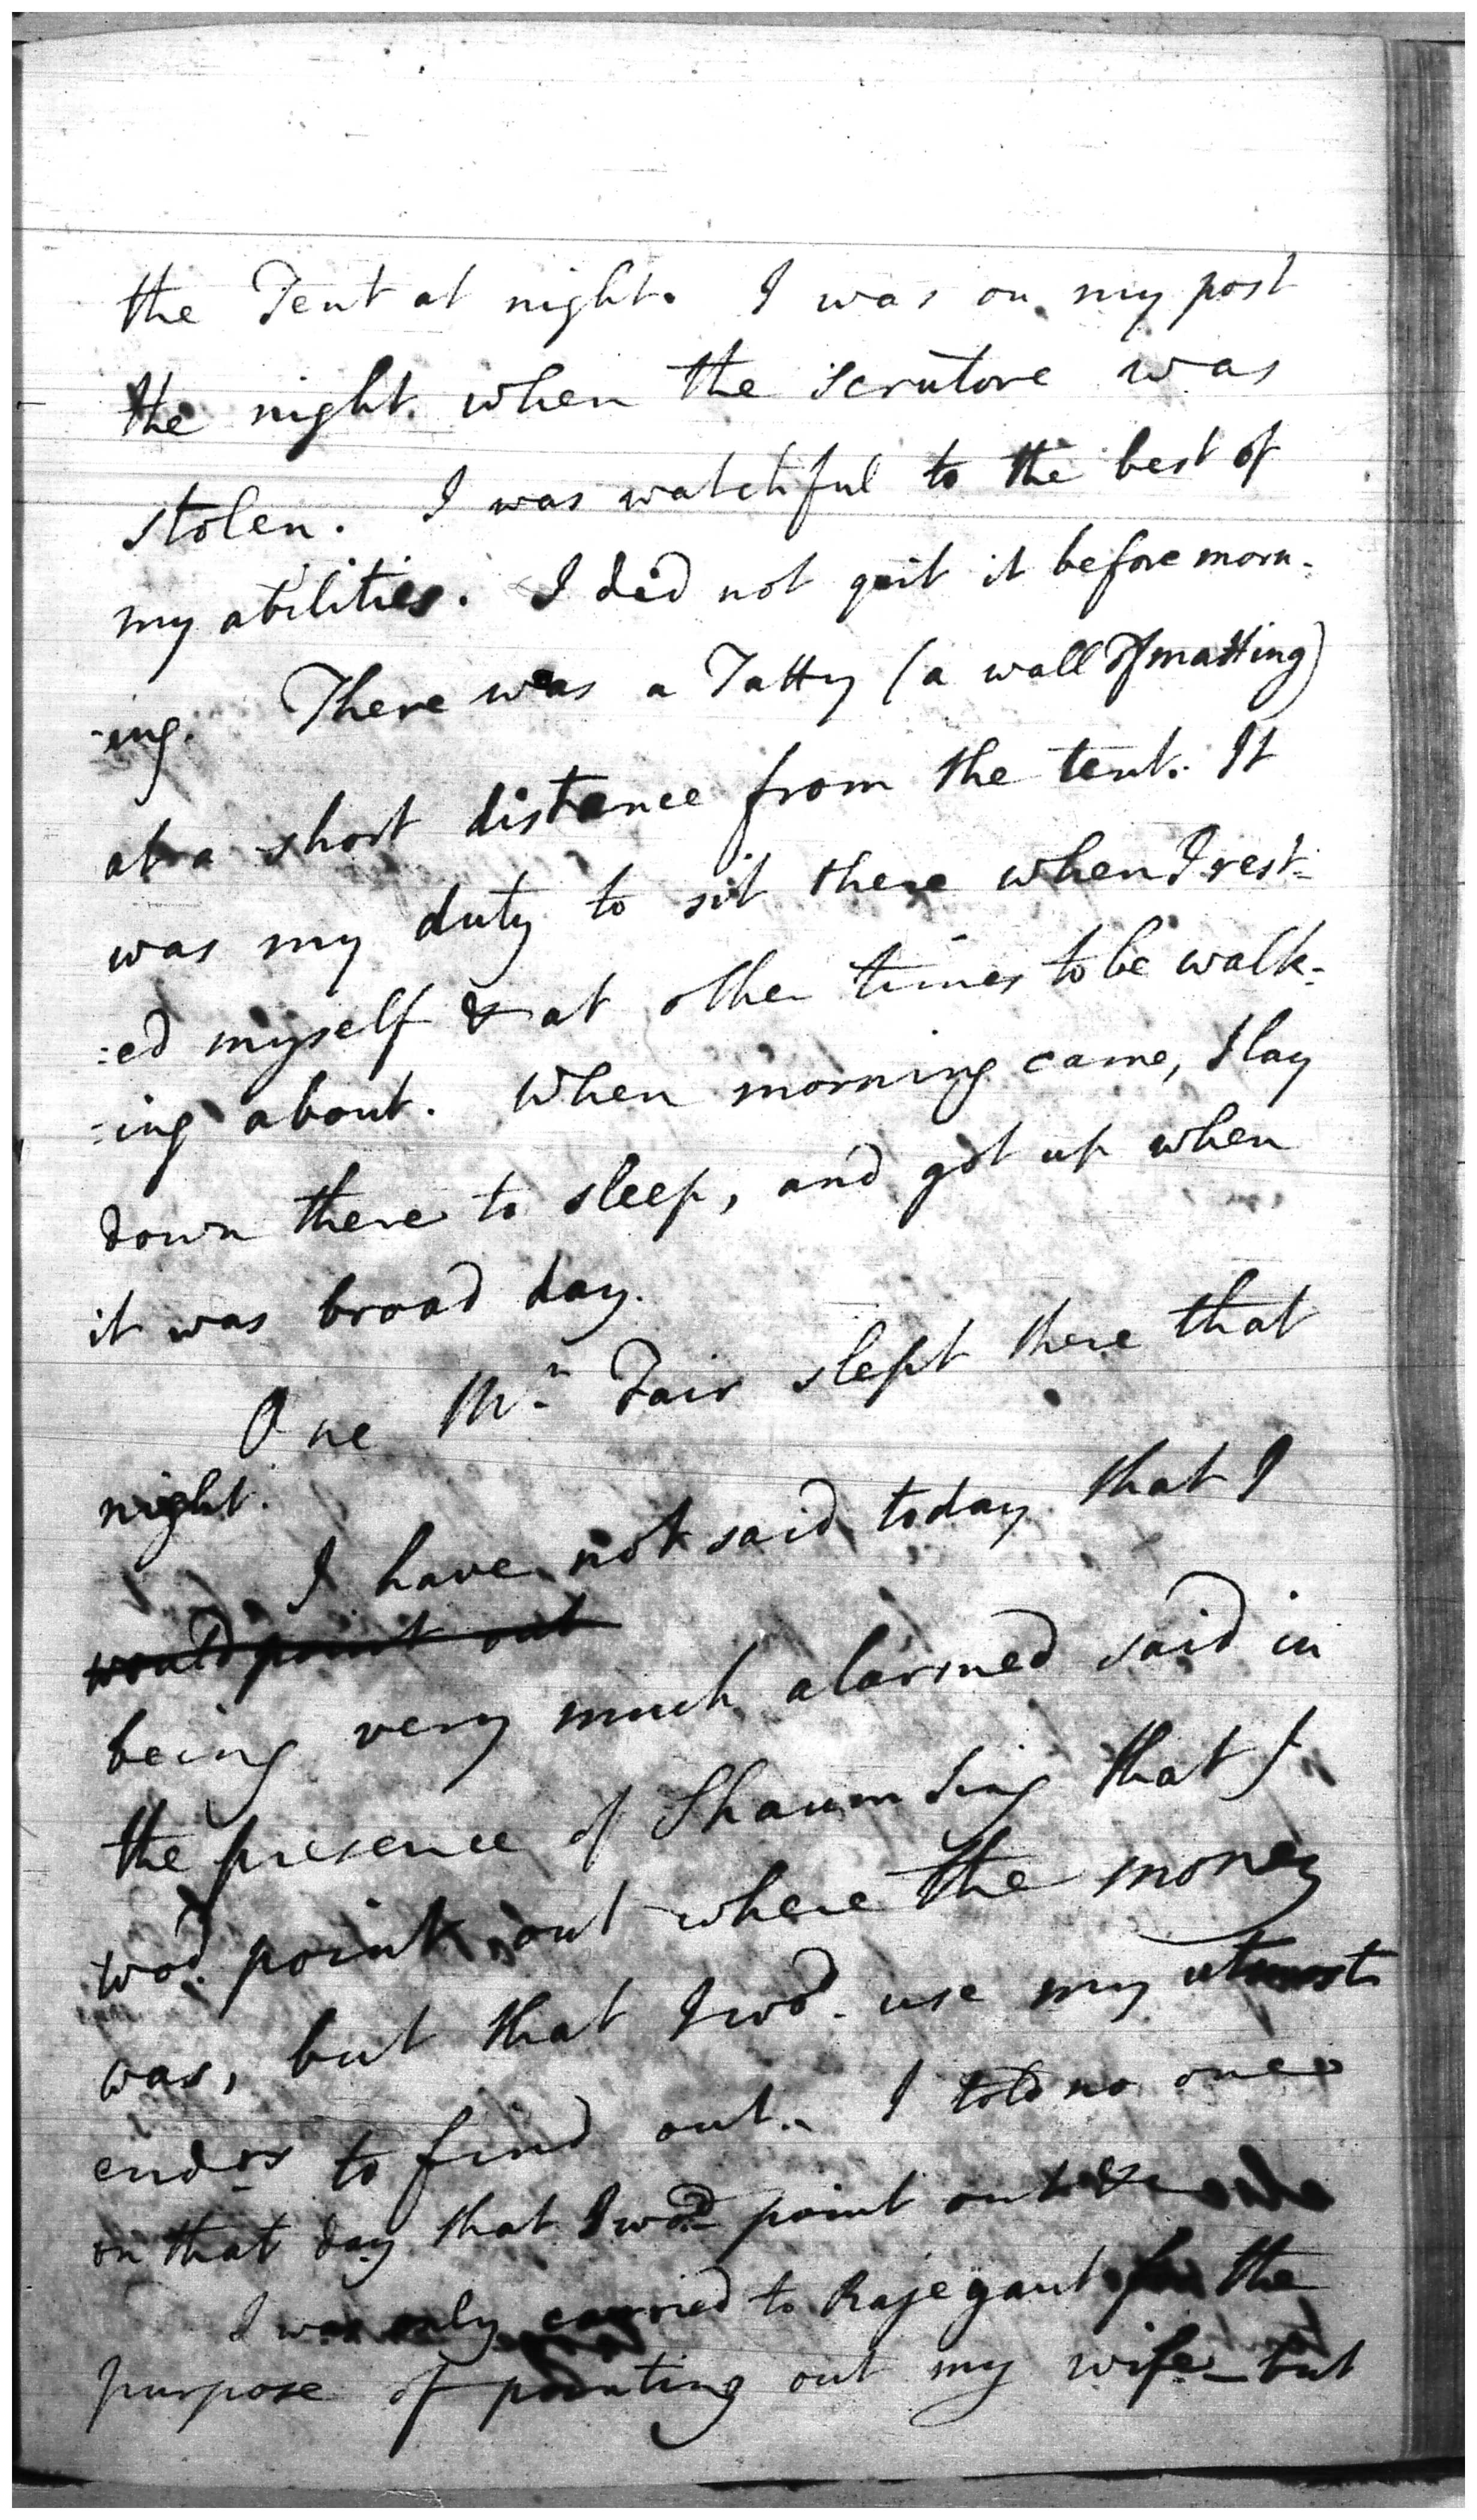 the Tent at night. I was on my post
the night when the scrutore was
stolen. I was watchful to the best of
my abilities. I did not quit it before morn-
-ing. There was a Tatty (a wall of matting)
at a short distance from the tent. It
was my duty to sit there when I rest-
=ed myself & at other times to be walk-
=ing about. When morning came, I lay
down there to sleep, and got up when
it was broad day.
One Mr. Fair slept there that
night.
I have not said today that I
would point out
being very much alarmed said in
the presence of Shaum Sing that I
wod. point out where the money
was, but that I wod. use my utmost
endrs to find out. I told no one
on that day that I wod. point out &c
I was only carried to Rajegaut for the
purpose of pointing out my wife - but